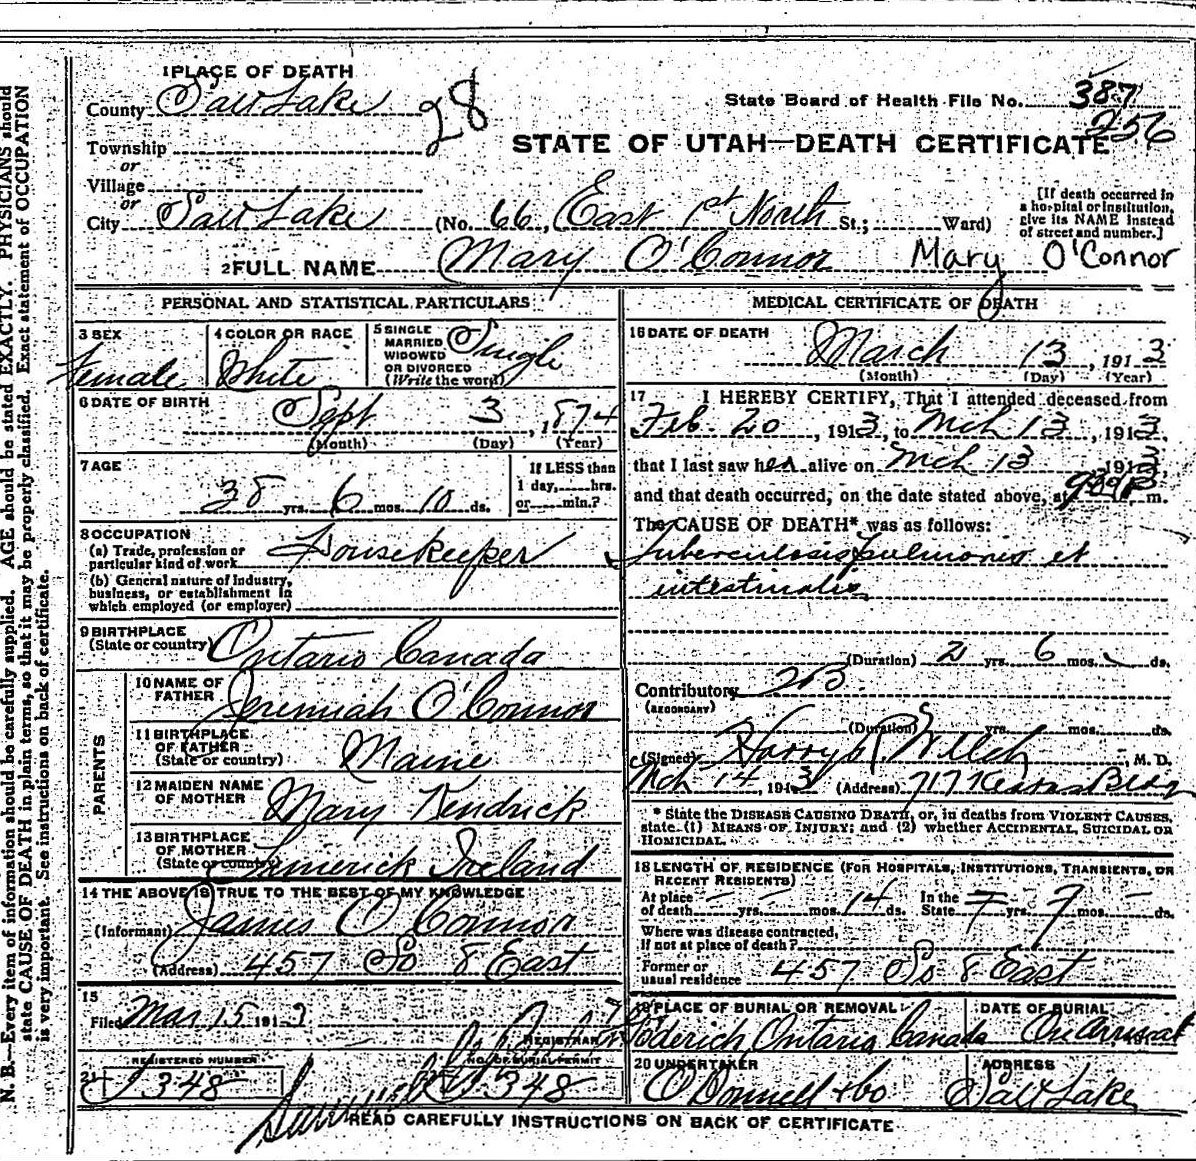 N. B.—Every item of information should be carefully supplied. AGE should be stated EXACTLY. PHYSICIANS should
state CAUSE OF DEATH in plain terms, so that it may be properly classified. Exact statement of OCCUPATION
is very important. See instructions on back of certificate.
1 PLACE OF DEATH
County Salt Lake 28
State Board of Health File No. 387
256
Township
or
Village
or
STATE OF UTAH—DEATH CERTIFICATE
City Salt Lake (No. 66, East 1st North St.; Ward)
[If death occurred in
a hospital or institution,
give its NAME instead
of street and number.]
2 FULL NAME Mary O'Connor Mary O'Connor
PERSONAL AND STATISTICAL PARTICULARS
3 SEX
Female
4 COLOR OR RACE
White
5 SINGLE
MARRIED
WIDOWED
OR DIVORCED
(Write the word)
Single
6 DATE OF BIRTH
Sept 3, 1874
(Month) (Day) (Year)
7 AGE
38 yrs. 6 mos. 10 ds.
If LESS than
1 day, hrs.
or min.?
8 OCCUPATION
(a) Trade, profession or
particular kind of work Housekeeper
(b) General nature of Industry,
business, or establishment in
which employed (or employer)
9 BIRTHPLACE
(State or country) Ontario Canada
PARENTS
10 NAME OF
FATHER Jeremiah O'Connor
11 BIRTHPLACE
OF FATHER
(State or country) Maine
12 MAIDEN NAME
OF MOTHER Mary Kendrick
13 BIRTHPLACE
OF MOTHER
(State or country) Limerick Ireland
14 THE ABOVE IS TRUE TO THE BEST OF MY KNOWLEDGE
(Informant) James O'Connor
(Address) 457 So 8 East
15
Filed Mar 15 1913
REGISTRAR
REGISTERED NUMBER
21 J348
NO. OF BURIAL PERMIT
J348
MEDICAL CERTIFICATE OF DEATH
16 DATE OF DEATH
March 13, 1913
(Month) (Day) (Year)
17 I HEREBY CERTIFY, That I attended deceased from
Feb. 20, 1913, to Mch 13, 1913,
that I last saw her alive on Mch 13 1913,
and that death occurred, on the date stated above, at m.
The CAUSE OF DEATH* was as follows:
Tuberculosis pulmonis et
intestinalis
(Duration) 2 yrs. 6 mos. ds.
Contributory
(SECONDARY)
(Duration) yrs. mos. ds.
(Signed) Harry P. Welch, M. D.
Mch 14, 1913 (Address) 717 Kearns Bldg
* State the DISEASE CAUSING DEATH, or, in deaths from VIOLENT CAUSES,
state (1) MEANS OF INJURY; and (2) whether ACCIDENTAL, SUICIDAL OR
HOMICIDAL.
18 LENGTH OF RESIDENCE (FOR HOSPITALS, INSTITUTIONS, TRANSIENTS, OR
RECENT RESIDENTS)
At place
of death — yrs. — mos. 14 ds.
In the
State 7 yrs. 7 mos. — ds.
Where was disease contracted,
if not at place of death?
Former or
usual residence 457 So 8 East
19 PLACE OF BURIAL OR REMOVAL
Goderich Ontario Canada
DATE OF BURIAL
On Arrival
20 UNDERTAKER
O'Donnell & Co
ADDRESS
Salt Lake
READ CAREFULLY INSTRUCTIONS ON BACK OF CERTIFICATE